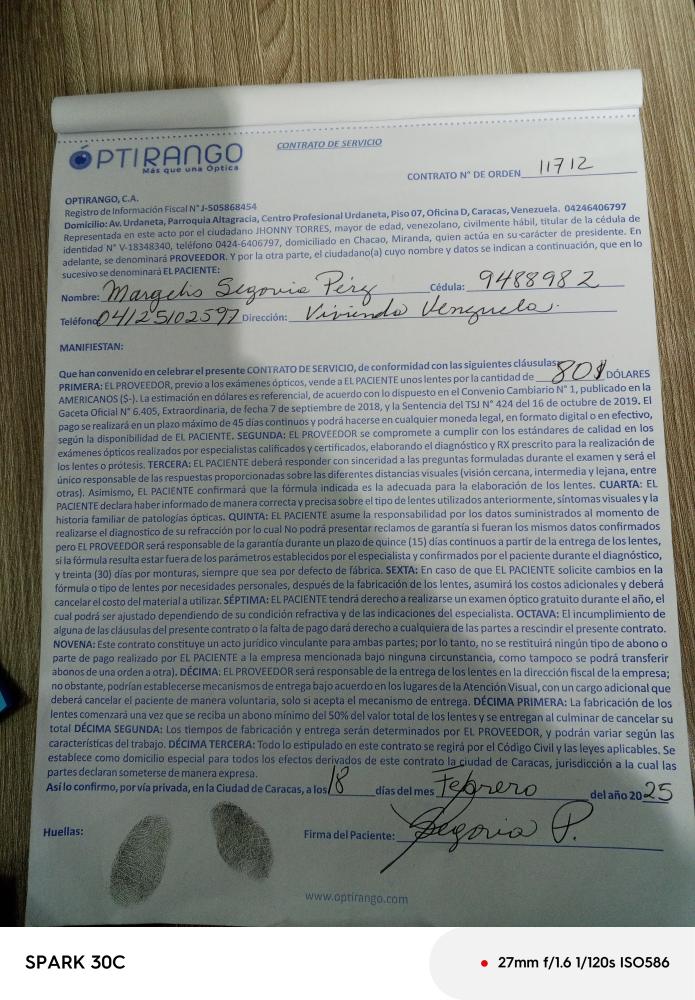 ÓPTIRANGO
Más que una Óptica
CONTRATO DE SERVICIO
CONTRATO N° DE ORDEN 11712
OPTIRANGO, C.A.
Registro de Información Fiscal N° J-505868454
Domicilio: Av. Urdaneta, Parroquia Altagracia, Centro Profesional Urdaneta, Piso 07, Oficina D, Caracas, Venezuela. 04246406797
Representada en este acto por el ciudadano JHONNY TORRES, mayor de edad, venezolano, civilmente hábil, titular de la cédula de
identidad N° V-18348340, teléfono 0424-6406797, domiciliado en Chacao, Miranda, quien actúa en su carácter de presidente. En
adelante, se denominará PROVEEDOR. Y por la otra parte, el ciudadano(a) cuyo nombre y datos se indican a continuación, que en lo
sucesivo se denominará EL PACIENTE:
Nombre: Margelis Segovia Pérez Cédula: 9488982
Teléfono 04125102597 Dirección: Vivienda Venezuela.
MANIFIESTAN:
Que han convenido en celebrar el presente CONTRATO DE SERVICIO, de conformidad con las siguientes cláusulas:
PRIMERA: EL PROVEEDOR, previo a los exámenes ópticos, vende a EL PACIENTE unos lentes por la cantidad de 80$ DÓLARES
AMERICANOS ($-). La estimación en dólares es referencial, de acuerdo con lo dispuesto en el Convenio Cambiario N° 1, publicado en la
Gaceta Oficial N° 6.405, Extraordinaria, de fecha 7 de septiembre de 2018, y la Sentencia del TSJ N° 424 del 16 de octubre de 2019. El
pago se realizará en un plazo máximo de 45 días continuos y podrá hacerse en cualquier moneda legal, en formato digital o en efectivo,
según la disponibilidad de EL PACIENTE. SEGUNDA: EL PROVEEDOR se compromete a cumplir con los estándares de calidad en los
exámenes ópticos realizados por especialistas calificados y certificados, elaborando el diagnóstico y RX prescrito para la realización de
los lentes o prótesis. TERCERA: EL PACIENTE deberá responder con sinceridad a las preguntas formuladas durante el examen y será el
único responsable de las respuestas proporcionadas sobre las diferentes distancias visuales (visión cercana, intermedia y lejana, entre
otras). Asimismo, EL PACIENTE confirmará que la fórmula indicada es la adecuada para la elaboración de los lentes. CUARTA: EL
PACIENTE declara haber informado de manera correcta y precisa sobre el tipo de lentes utilizados anteriormente, síntomas visuales y la
historia familiar de patologías ópticas. QUINTA: EL PACIENTE asume la responsabilidad por los datos suministrados al momento de
realizarse el diagnostico de su refracción por lo cual No podrá presentar reclamos de garantía si fueran los mismos datos confirmados
pero EL PROVEEDOR será responsable de la garantía durante un plazo de quince (15) días continuos a partir de la entrega de los lentes,
si la fórmula resulta estar fuera de los parámetros establecidos por el especialista y confirmados por el paciente durante el diagnóstico,
y treinta (30) días por monturas, siempre que sea por defecto de fábrica. SEXTA: En caso de que EL PACIENTE solicite cambios en la
fórmula o tipo de lentes por necesidades personales, después de la fabricación de los lentes, asumirá los costos adicionales y deberá
cancelar el costo del material a utilizar. SÉPTIMA: EL PACIENTE tendrá derecho a realizarse un examen óptico gratuito durante el año, el
cual podrá ser ajustado dependiendo de su condición refractiva y de las indicaciones del especialista. OCTAVA: El incumplimiento de
alguna de las cláusulas del presente contrato o la falta de pago dará derecho a cualquiera de las partes a rescindir el presente contrato.
NOVENA: Este contrato constituye un acto jurídico vinculante para ambas partes; por lo tanto, no se restituirá ningún tipo de abono o
parte de pago realizado por EL PACIENTE a la empresa mencionada bajo ninguna circunstancia, como tampoco se podrá transferir
abonos de una orden a otra). DÉCIMA: EL PROVEEDOR será responsable de la entrega de los lentes en la dirección fiscal de la empresa;
no obstante, podrían establecerse mecanismos de entrega bajo acuerdo en los lugares de la Atención Visual, con un cargo adicional que
deberá cancelar el paciente de manera voluntaria, solo si acepta el mecanismo de entrega. DÉCIMA PRIMERA: La fabricación de los
lentes comenzará una vez que se reciba un abono mínimo del 50% del valor total de los lentes y se entregan al culminar de cancelar su
total DÉCIMA SEGUNDA: Los tiempos de fabricación y entrega serán determinados por EL PROVEEDOR, y podrán variar según las
características del trabajo. DÉCIMA TERCERA: Todo lo estipulado en este contrato se regirá por el Código Civil y las leyes aplicables. Se
establece como domicilio especial para todos los efectos derivados de este contrato la ciudad de Caracas, jurisdicción a la cual las
partes declaran someterse de manera expresa.
Así lo confirmo, por vía privada, en la Ciudad de Caracas, a los 18 días del mes Febrero del año 2025
Huellas: Firma del Paciente: Segovia P.
www.optirango.com
SPARK 30C
27mm f/1.6 1/120s ISO586